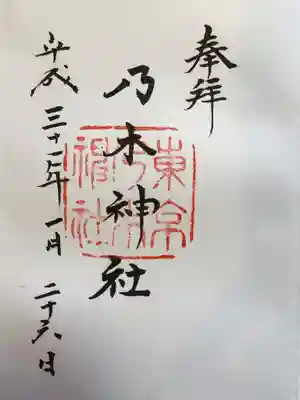 奉拝
乃木神社
東京乃木神社
平成三十一年一月二十六日